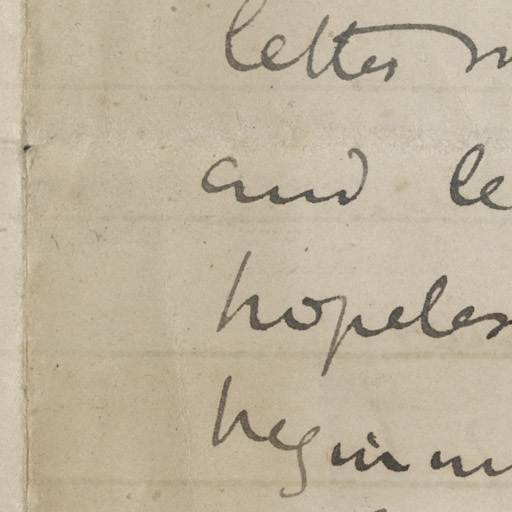 letter
and le
hopeless
beginn